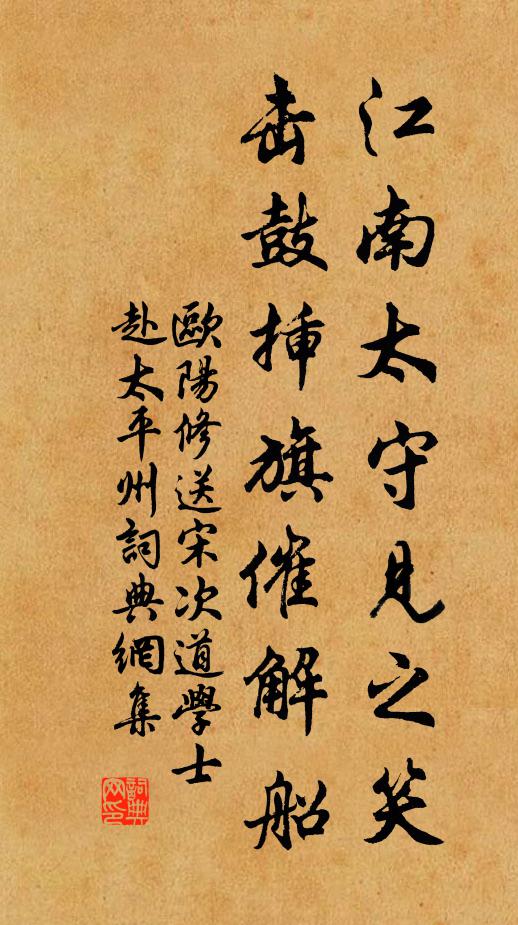 江南太守見之笑
击鼓挿旗催解船
歐陽修送宋次道學士
赴太平州詞典網集
詞典
网印